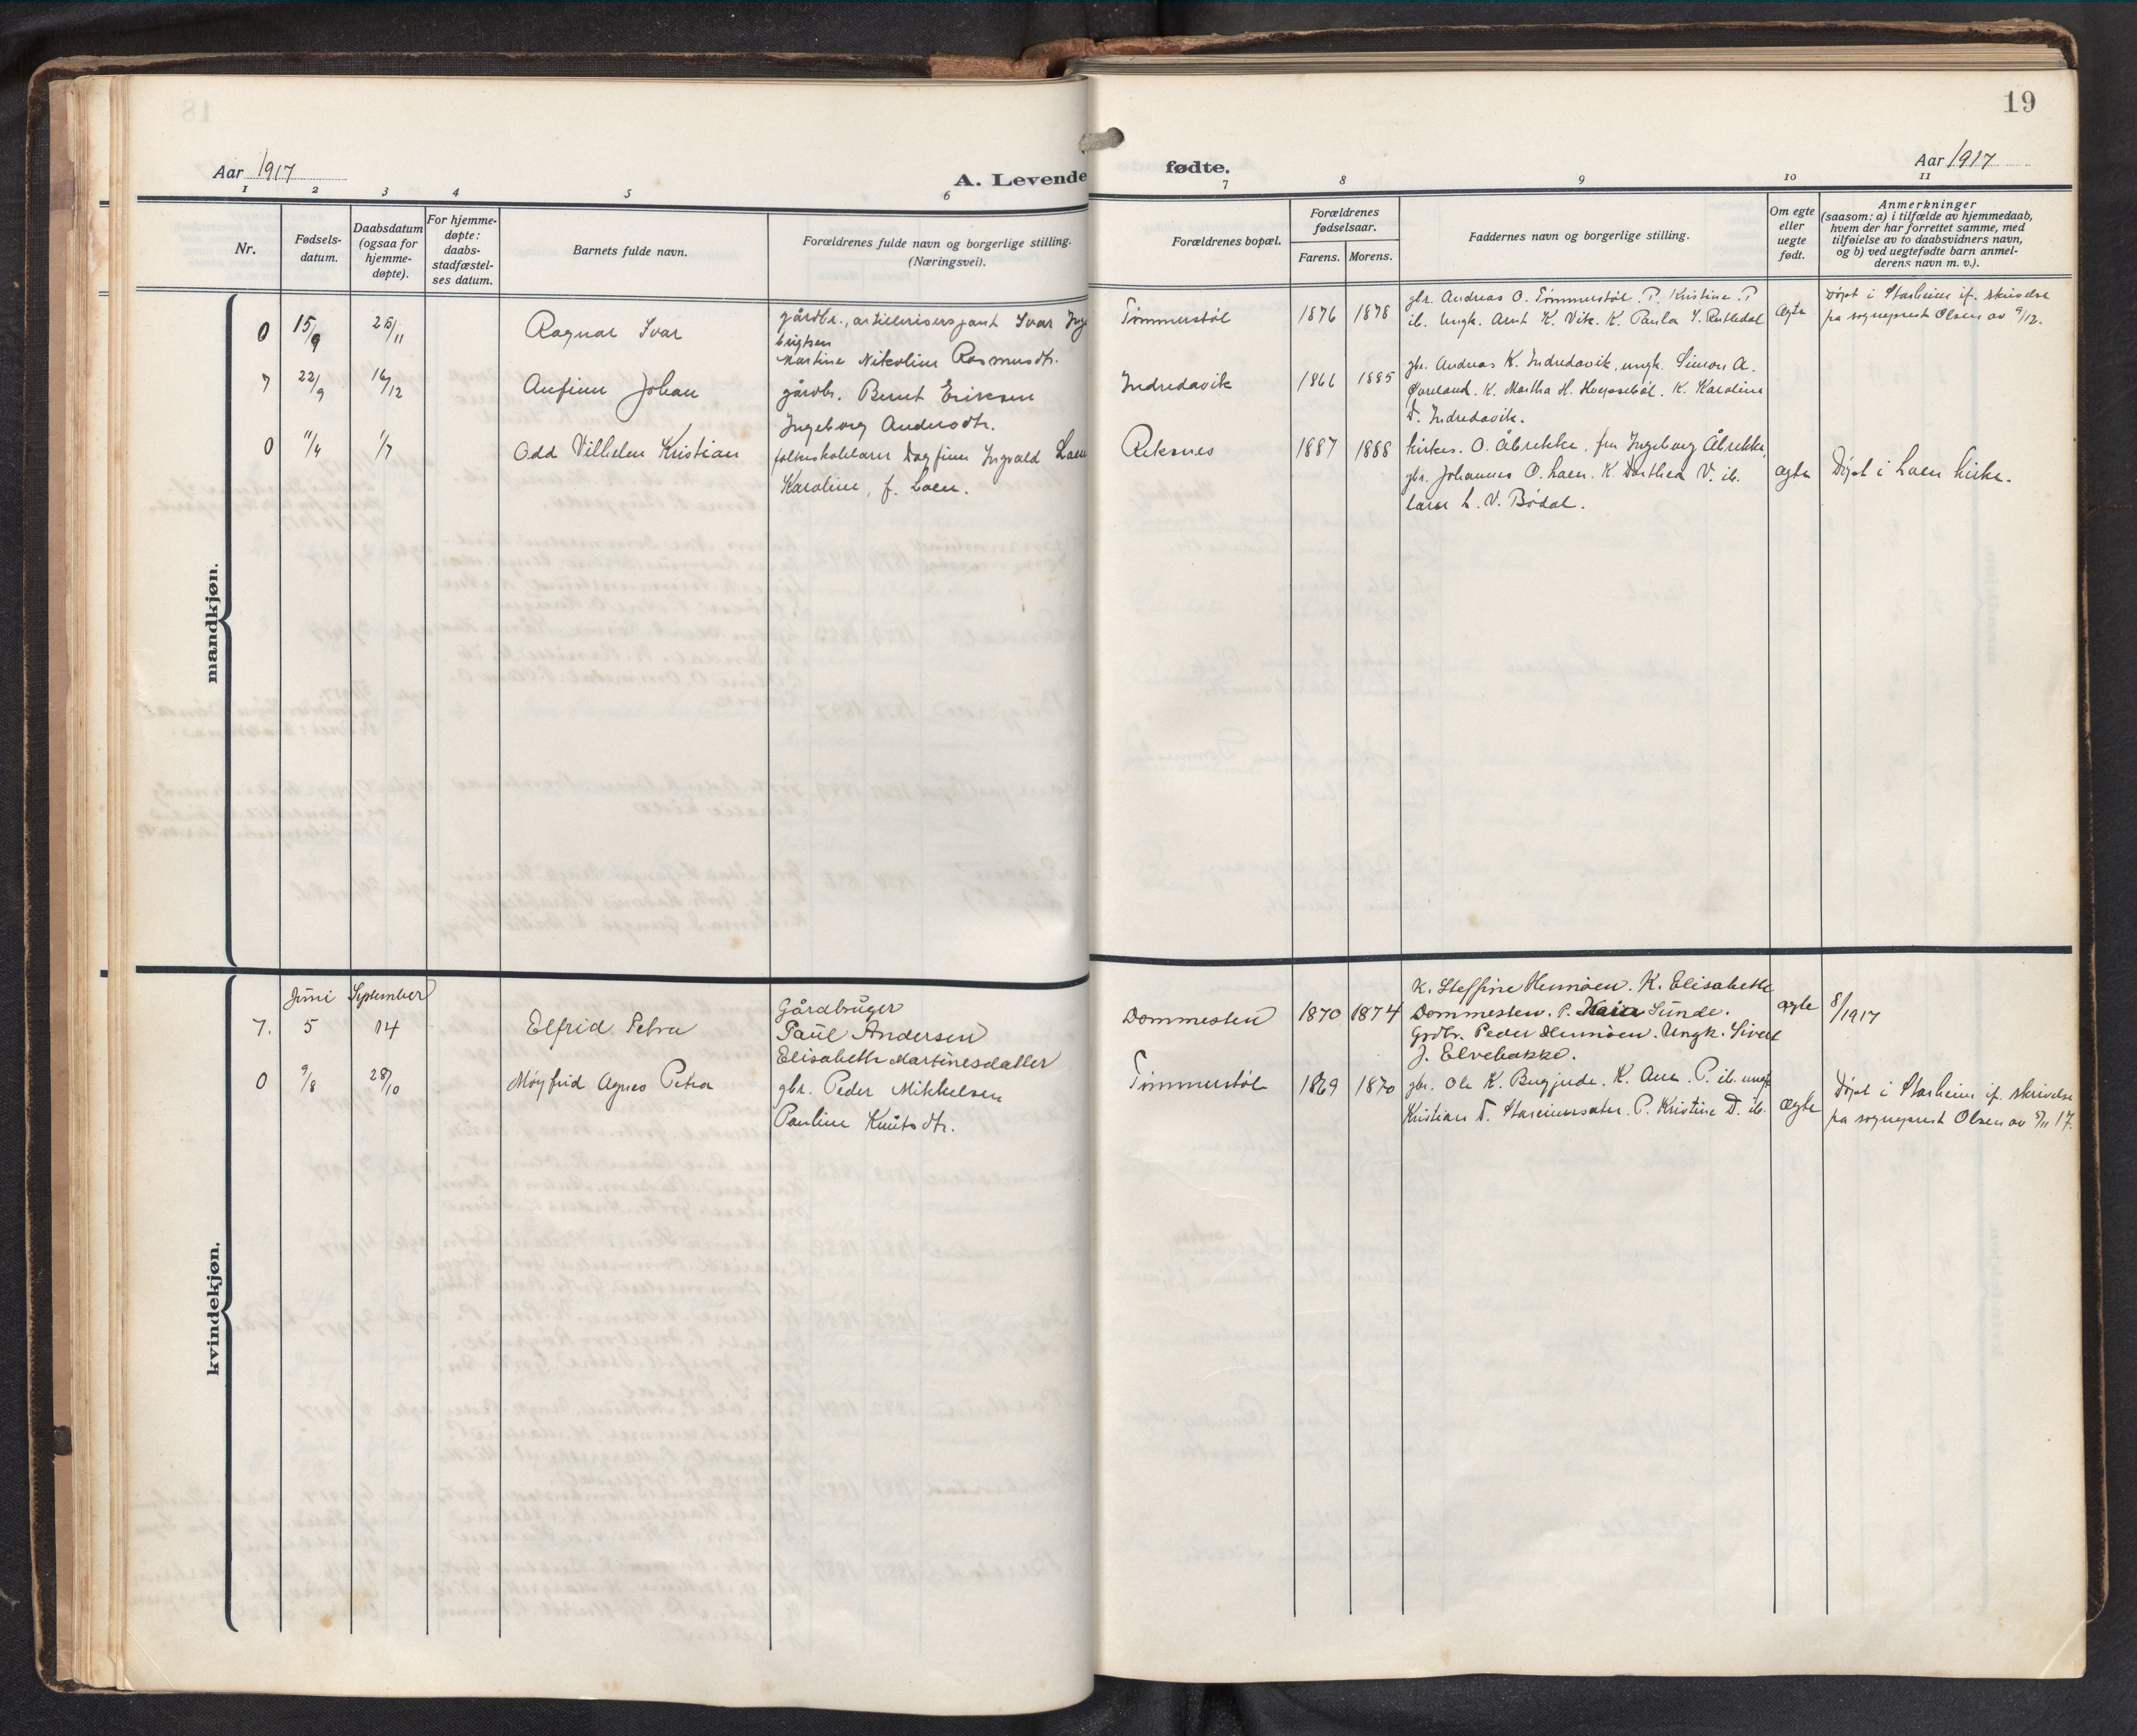 19
Aar 1917
A. Levende fødte.
Aar 1917
1 2 3 4 5 6 7 8 9 10 11
Nr.
Fødsels-
datum.
Daabsdatum
(ogsaa for
hjemme-
døpte).
For hjemme-
døpte:
daabs-
stadfæstel-
ses datum.
Barnets fulde navn.
Forældrenes fulde navn og borgerlige stilling.
(Næringsvei).
Forældrenes bopæl.
Forældrenes
fødselsaar.
Farens. Morens.
Faddernes navn og borgerlige stilling.
Om egte
eller
uegte
født.
Anmerkninger
(saasom: a) i tilfælde av hjemmedaab,
hvem der har forrettet samme, med
tilføielse av to daabsvidners navn,
og b) ved uegtefødte barn anmel-
derens navn m. v.).
mandkjøn.
0 15/9 25/11 Ragnar Ivar
gårdbr., artillerisersjant Ivar Ing
brigtsen
Martine Nikoline Rasmusdtr.
Tømmerstøl 1876 1878
gbr. Andreas O. Tømmerstøl. P. Kristine P.
ib. Ungk. Arnt K. Vik. K. Paula Y. Rutledal
Ægte
Døpt i Starheim if. skrivelse
fra sogneprest Olsen av 9/12.
7 22/9 16/12 Anfinn Johan
gårdbr. Bernt Eriksen
Ingeborg Andersdtr.
Indredavik 1866 1885
gbr. Andreas K. Indredavik, ungk. Simon A.
K. Martha H. K. Karoline
D. Indredavik.
0 11/4 1/7 Odd Vilhelm Kristian
folkeskolelærer Dagfinn Ingvald Loen
Karoline, f. Loen.
Reksnes 1887 1888
kirkes. O. Åbrekke, fru Ingeborg Åbrekke,
gbr. Johannes O. Loen. K. Dorthea V. ib.
lærer L. V. Bødal.
ægte
Døpt i Loen kirke.
kvindekjøn.
Juni September
7. 5 14 Elfrid Petra
Gårdbruger
Paul Andersen
Elisabeth Martinesdatter
Dommesten 1870 1874
K. Steffine Hennøen. K. Elisabeth
Dommesten. P. Kaia Sunde.
Grdbr. Peder Hennøen. Ungk. Sivert
J. Elvebakke.
ægte
8/1917
0 9/8 28/10 Møyfrid Agnes Petra
gbr. Peder Mikkelsen
Pauline Knutsdtr.
Tømmerstøl 1869 1870
gbr. Ole K. Bugjerde. K. Ane P. ib. ungk
Kristian T. P. Kristine D. ib.
Ægte
Døpt i Starheim if. skrivelse
fra sogneprest Olsen av 5/11 17.